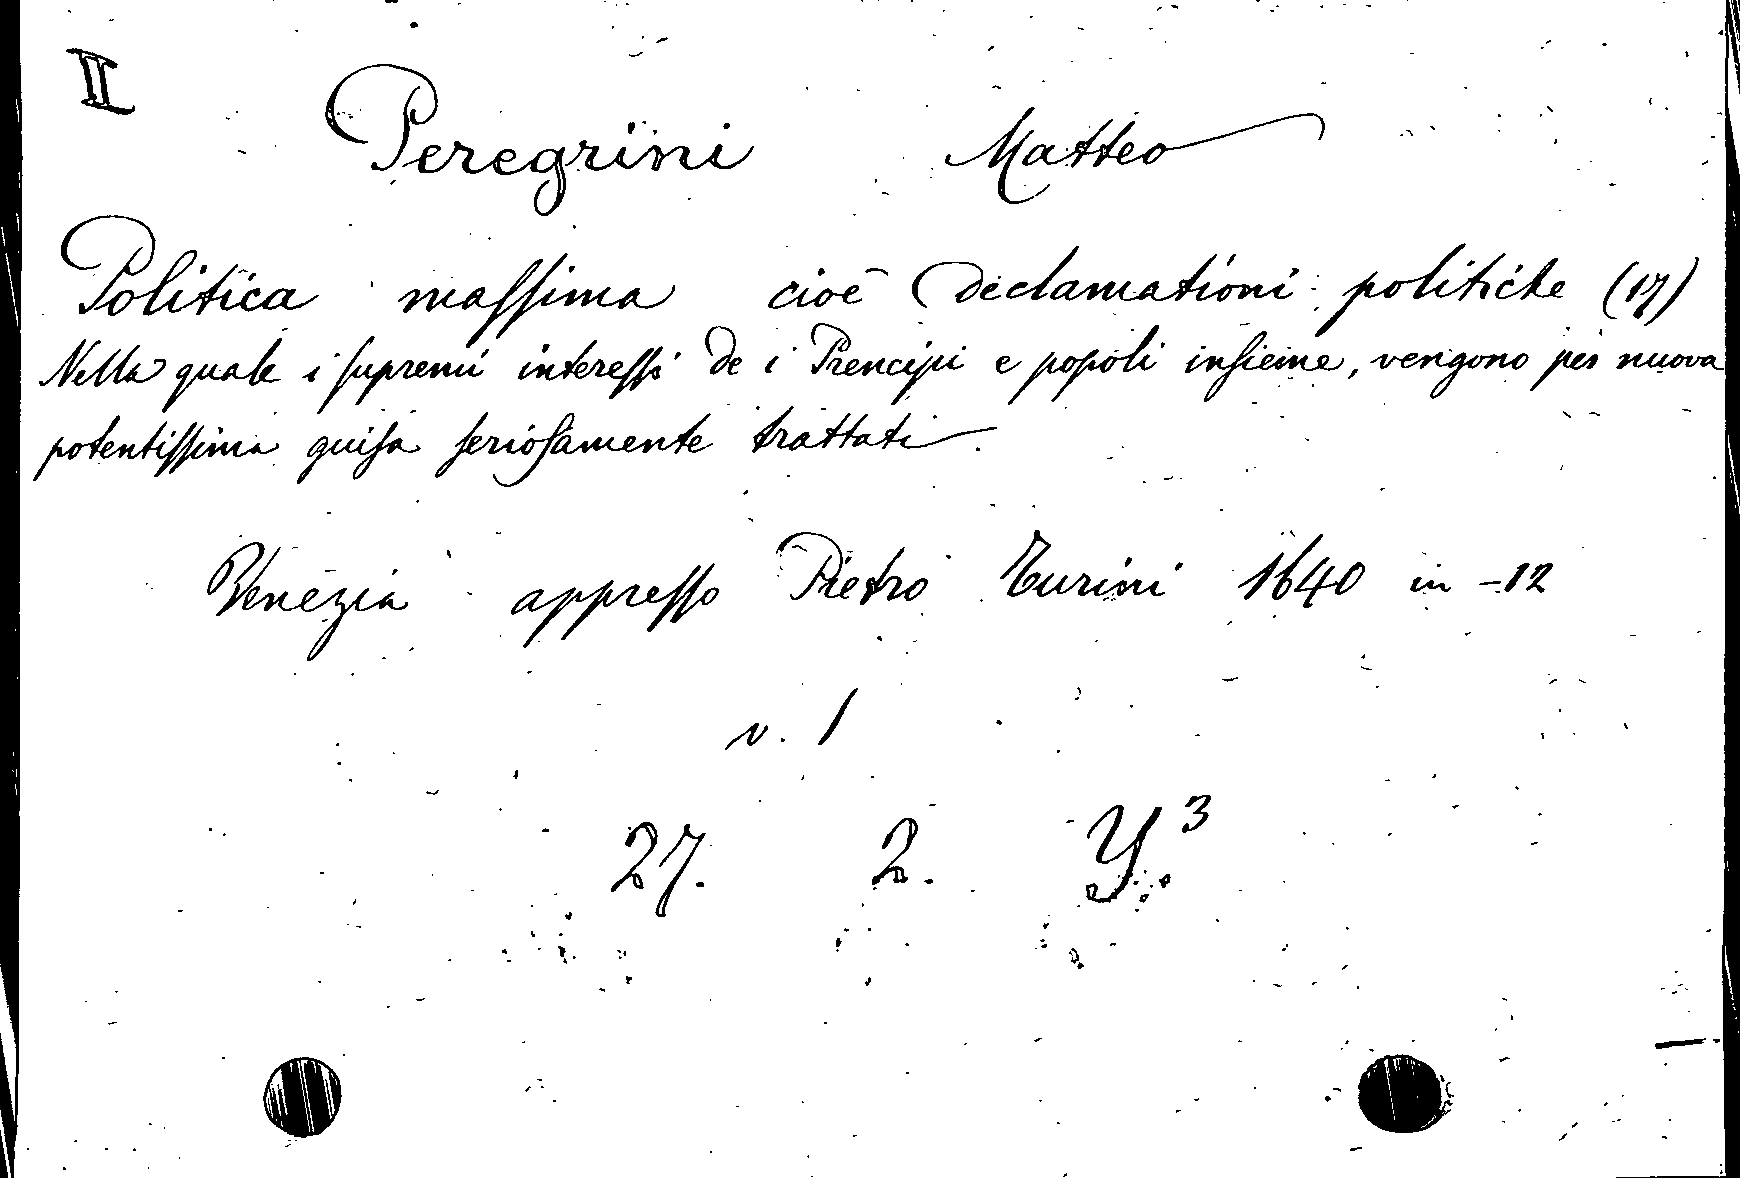 II
Peregrini Matteo
Politica maſsima cioè Declamationi politiche (17)
Nella quale i ſupremi intereſsi De i Prencipi e popoli inſieme, vengono per nuova
potentiſsima guiſa ſerioſamente trattati.
Venezia appreſso Pietro Turini 1640 in -12
v. 1
27. 2. Y.³